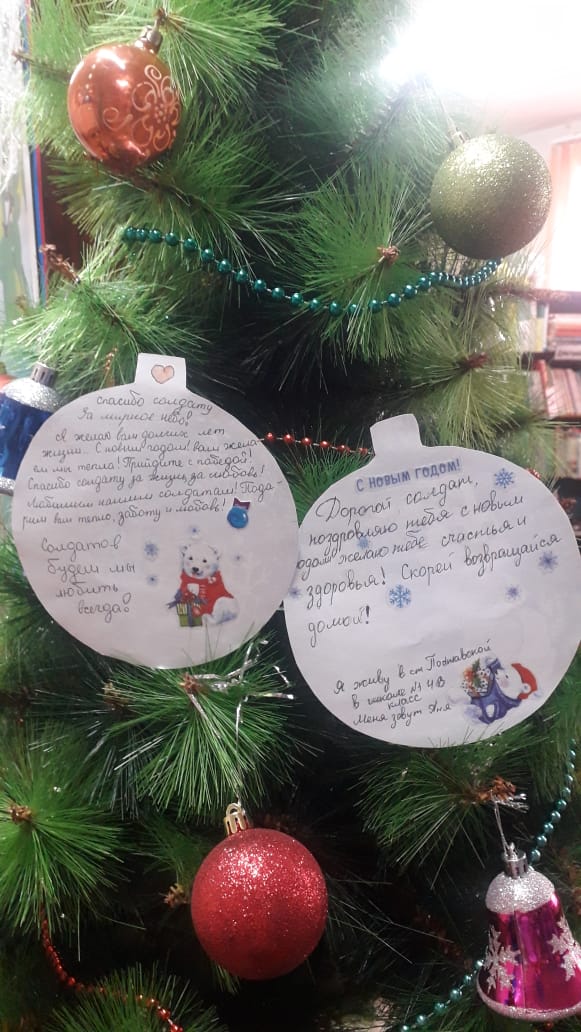 спасибо солдату
за мирное небо!
Я желаю вам долгих лет
жизни. С новым годом! вам жела-
ем мы тепла! Прийдите с победой!
Спасибо солдату за жизнь, за любовь!
Любимым нашим солдатам! Пода-
рим вам тепло, заботу и любовь!
Солдатов
будем мы
любить
всегда!
С НОВЫМ ГОДОМ!
Дорогой солдат,
поздровляю тебя с новым
годом! желаю тебе счастья и
здоровья! Скорей возвращайся
домой!
Я живу в ст. Полтавской
в школе №1 4 В
класс
Меня зовут Аня